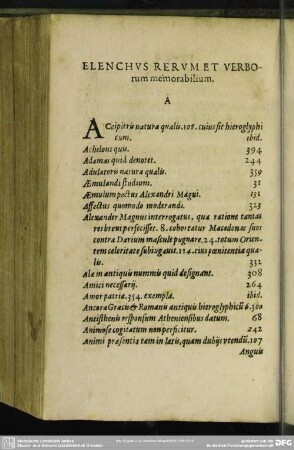 ELENCHVS RERVM ET VERBO-
rum memorabilium.
A
ACcipitris natura qualis. 105. cuius sit hieroglyphi
cum. ibid.
Achelous quis. 394
Adamas quid denotet. 244
Adulatoris natura qualis. 359
Æmulandi studium. 31
Æmulum poctus Alexandri Magni. 132
Affectus quomodo moderandi. 323
Alexander Magnus interrogatus, qua ratione tantas
res breui perfecisset. 8. cohortatur Macedonas suos
contra Darium mascule pugnare. 24. totum Orien-
tem celeritate subiugauit. 124. eius pœnitentia qua-
lis. 332
Alæ in antiquis nummis quid designant. 308
Amici necessarij. 264
Amor patriæ. 354. exempla. ibid.
Ancora Græcis & Romanis antiquis hieroglyphicũ 6. 300
Antisthenis responsum Atheniensibus datum. 68
Animose cogitatum non perficitur. 242
Animi præsentia tam in lætis, quam dubijs vtendũ. 107
Anguis